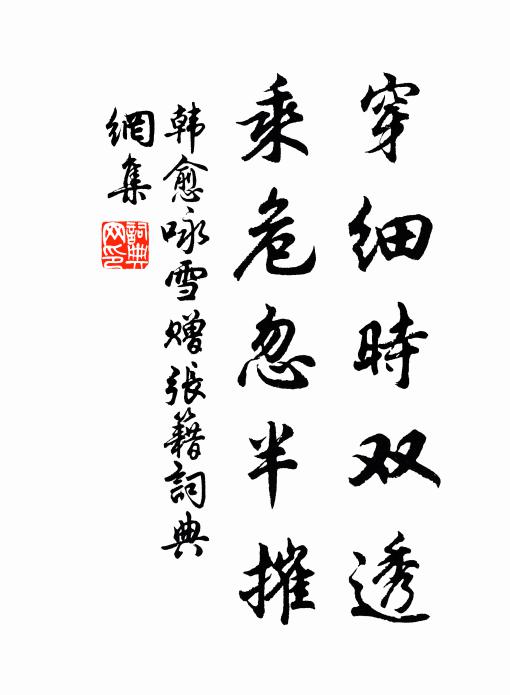 穿细時双透
乘危忽半摧
韩愈咏雪赠張籍詞典
網集
詞典網印